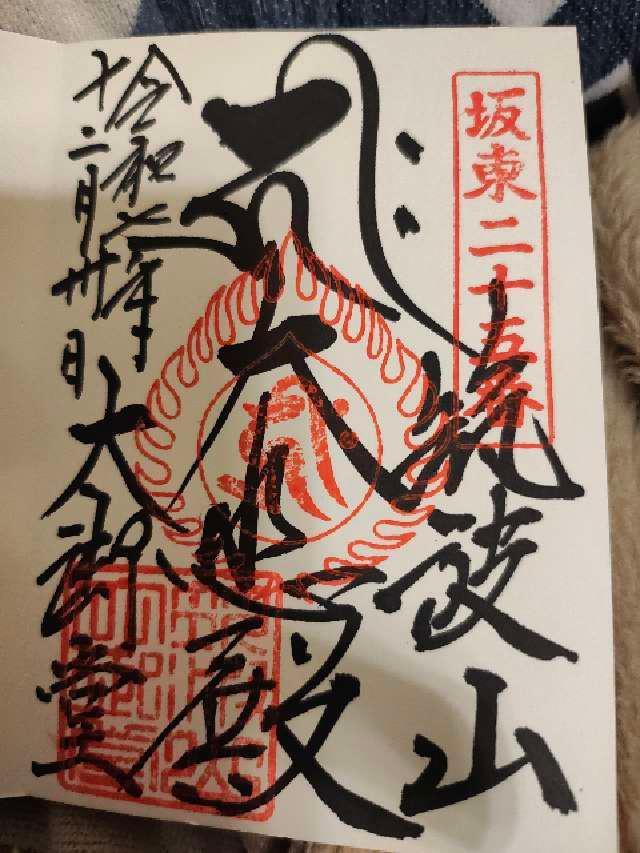 坂東二十五番
筑波山
大悲殿
令和六年
十二月卅日
大御堂